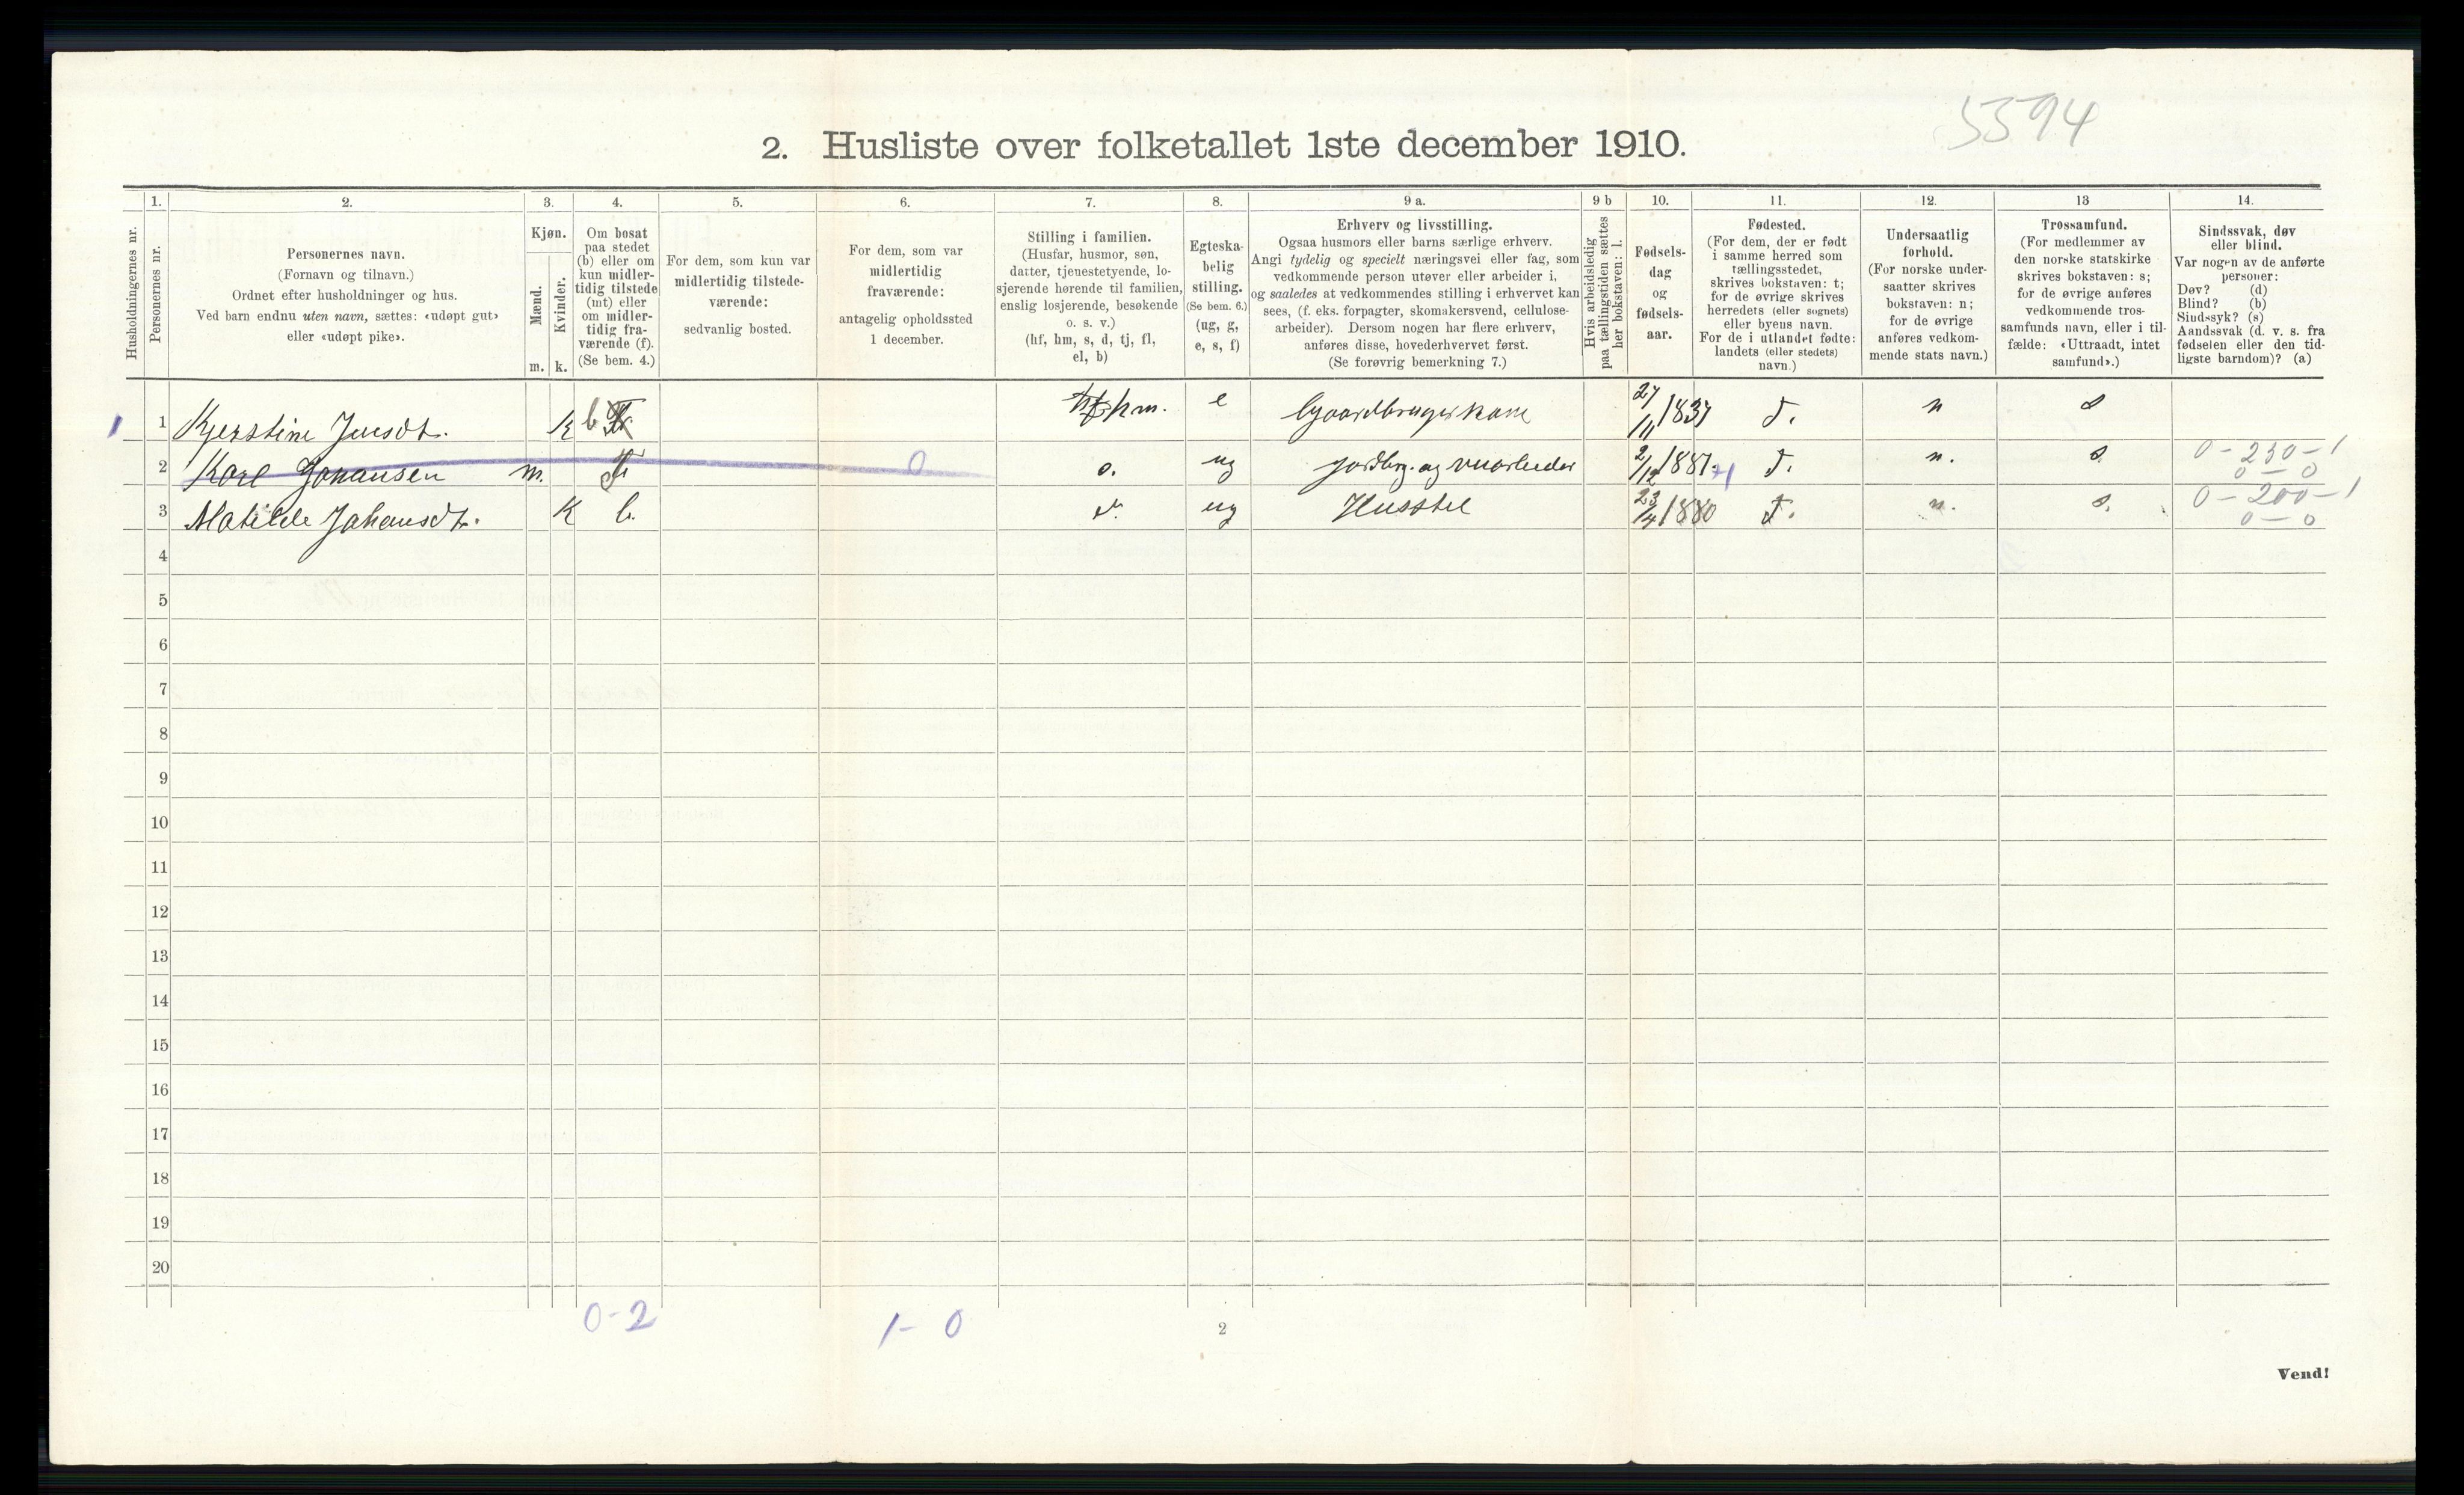 5594
2. Husliste over folketallet 1ste december 1910.
Husholdningernes nr.
1.
Personernes nr.
2.
Personernes navn.
(Fornavn og tilnavn.)
Ordnet efter husholdninger og hus.
Ved barn endnu uten navn, sættes: «udøpt gut»
eller «udøpt pike».
3.
Kjøn.
Mænd.
Kvinder.
m. k.
4.
Om bosat
paa stedet
(b) eller om
kun midler-
tidig tilstede
(mt) eller
om midler-
tidig fra-
værende (f).
(Se bem. 4.)
5.
For dem, som kun var
midlertidig tilstede-
værende:
sedvanlig bosted.
6.
For dem, som var
midlertidig
fraværende:
antagelig opholdssted
1 december.
7.
Stilling i familien.
(Husfar, husmor, søn,
datter, tjenestetyende, lo-
sjerende hørende til familien,
enslig losjerende, besøkende
o. s. v.)
(hf, hm, s, d, tj, fl,
el, b)
8.
Egteska-
belig
stilling.
(Se bem. 6.)
(ug, g,
e, s, f)
9 a.
Erhverv og livsstilling.
Ogsaa husmors eller barns særlige erhverv.
Angi tydelig og specielt næringsvei eller fag, som
vedkommende person utøver eller arbeider i,
og saaledes at vedkommendes stilling i erhvervet kan
sees, (f. eks. forpagter, skomakersvend, cellulose-
arbeider). Dersom nogen har flere erhverv,
anføres disse, hovederhvervet først.
(Se forøvrig bemerkning 7.)
9 b
Hvis arbeidsledig
paa tællingstiden sættes
her bokstaven: l.
10.
Fødsels-
dag
og
fødsels-
aar.
11.
Fødested.
(For dem, der er født
i samme herred som
tællingsstedet,
skrives bokstaven: t;
for de øvrige skrives
herredets (eller sognets)
eller byens navn.
For de i utlandet fødte:
landets (eller stedets)
navn.)
12.
Undersaatlig
forhold.
(For norske under-
saatter skrives
bokstaven: n;
for de øvrige
anføres vedkom-
mende stats navn.)
13
Trossamfund.
(For medlemmer av
den norske statskirke
skrives bokstaven: s;
for de øvrige anføres
vedkommende tros-
samfunds navn, eller i til-
fælde: «Uttraadt, intet
samfund».)
14.
Sindssvak, døv
eller blind.
Var nogen av de anførte
personer:
Døv? (d)
Blind? (b)
Sindssyk? (s)
Aandssvak (d. v. s. fra
fødselen eller den tid-
ligste barndom)? (a)
1 1 Kjerstine Jensdt. K b hm. e Gaardbrugerkone 27/11 1837 T. n s
2 Karl Johansen m. F 0 s. ug jordbrg. og 2/12 1881 T. n. s. 0-230-1
0-0
3 Matilde Johansdt. K b. d. ug Husstel 23/4 1880 T. n. s. 0-200-1
0-0
4
5
6
7
8
9
10
11
12
13
14
15
16
17
18
19
20
0-2 1-0
2
Vend!